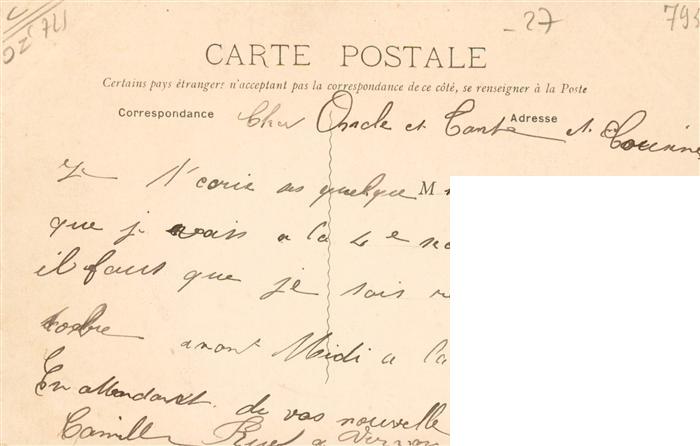 -27
795
CARTE POSTALE
Certains pays étrangers n'acceptant pas la correspondance de ce côté, se renseigner à la Poste
Correspondance
Adresse
Cher Oncle et Tante et Cousine
Je t'écris ses quelque
M
que je vais a la 4e
il faut que je sois
avant Midi a la
En attendant de vos nouvelle
Camille